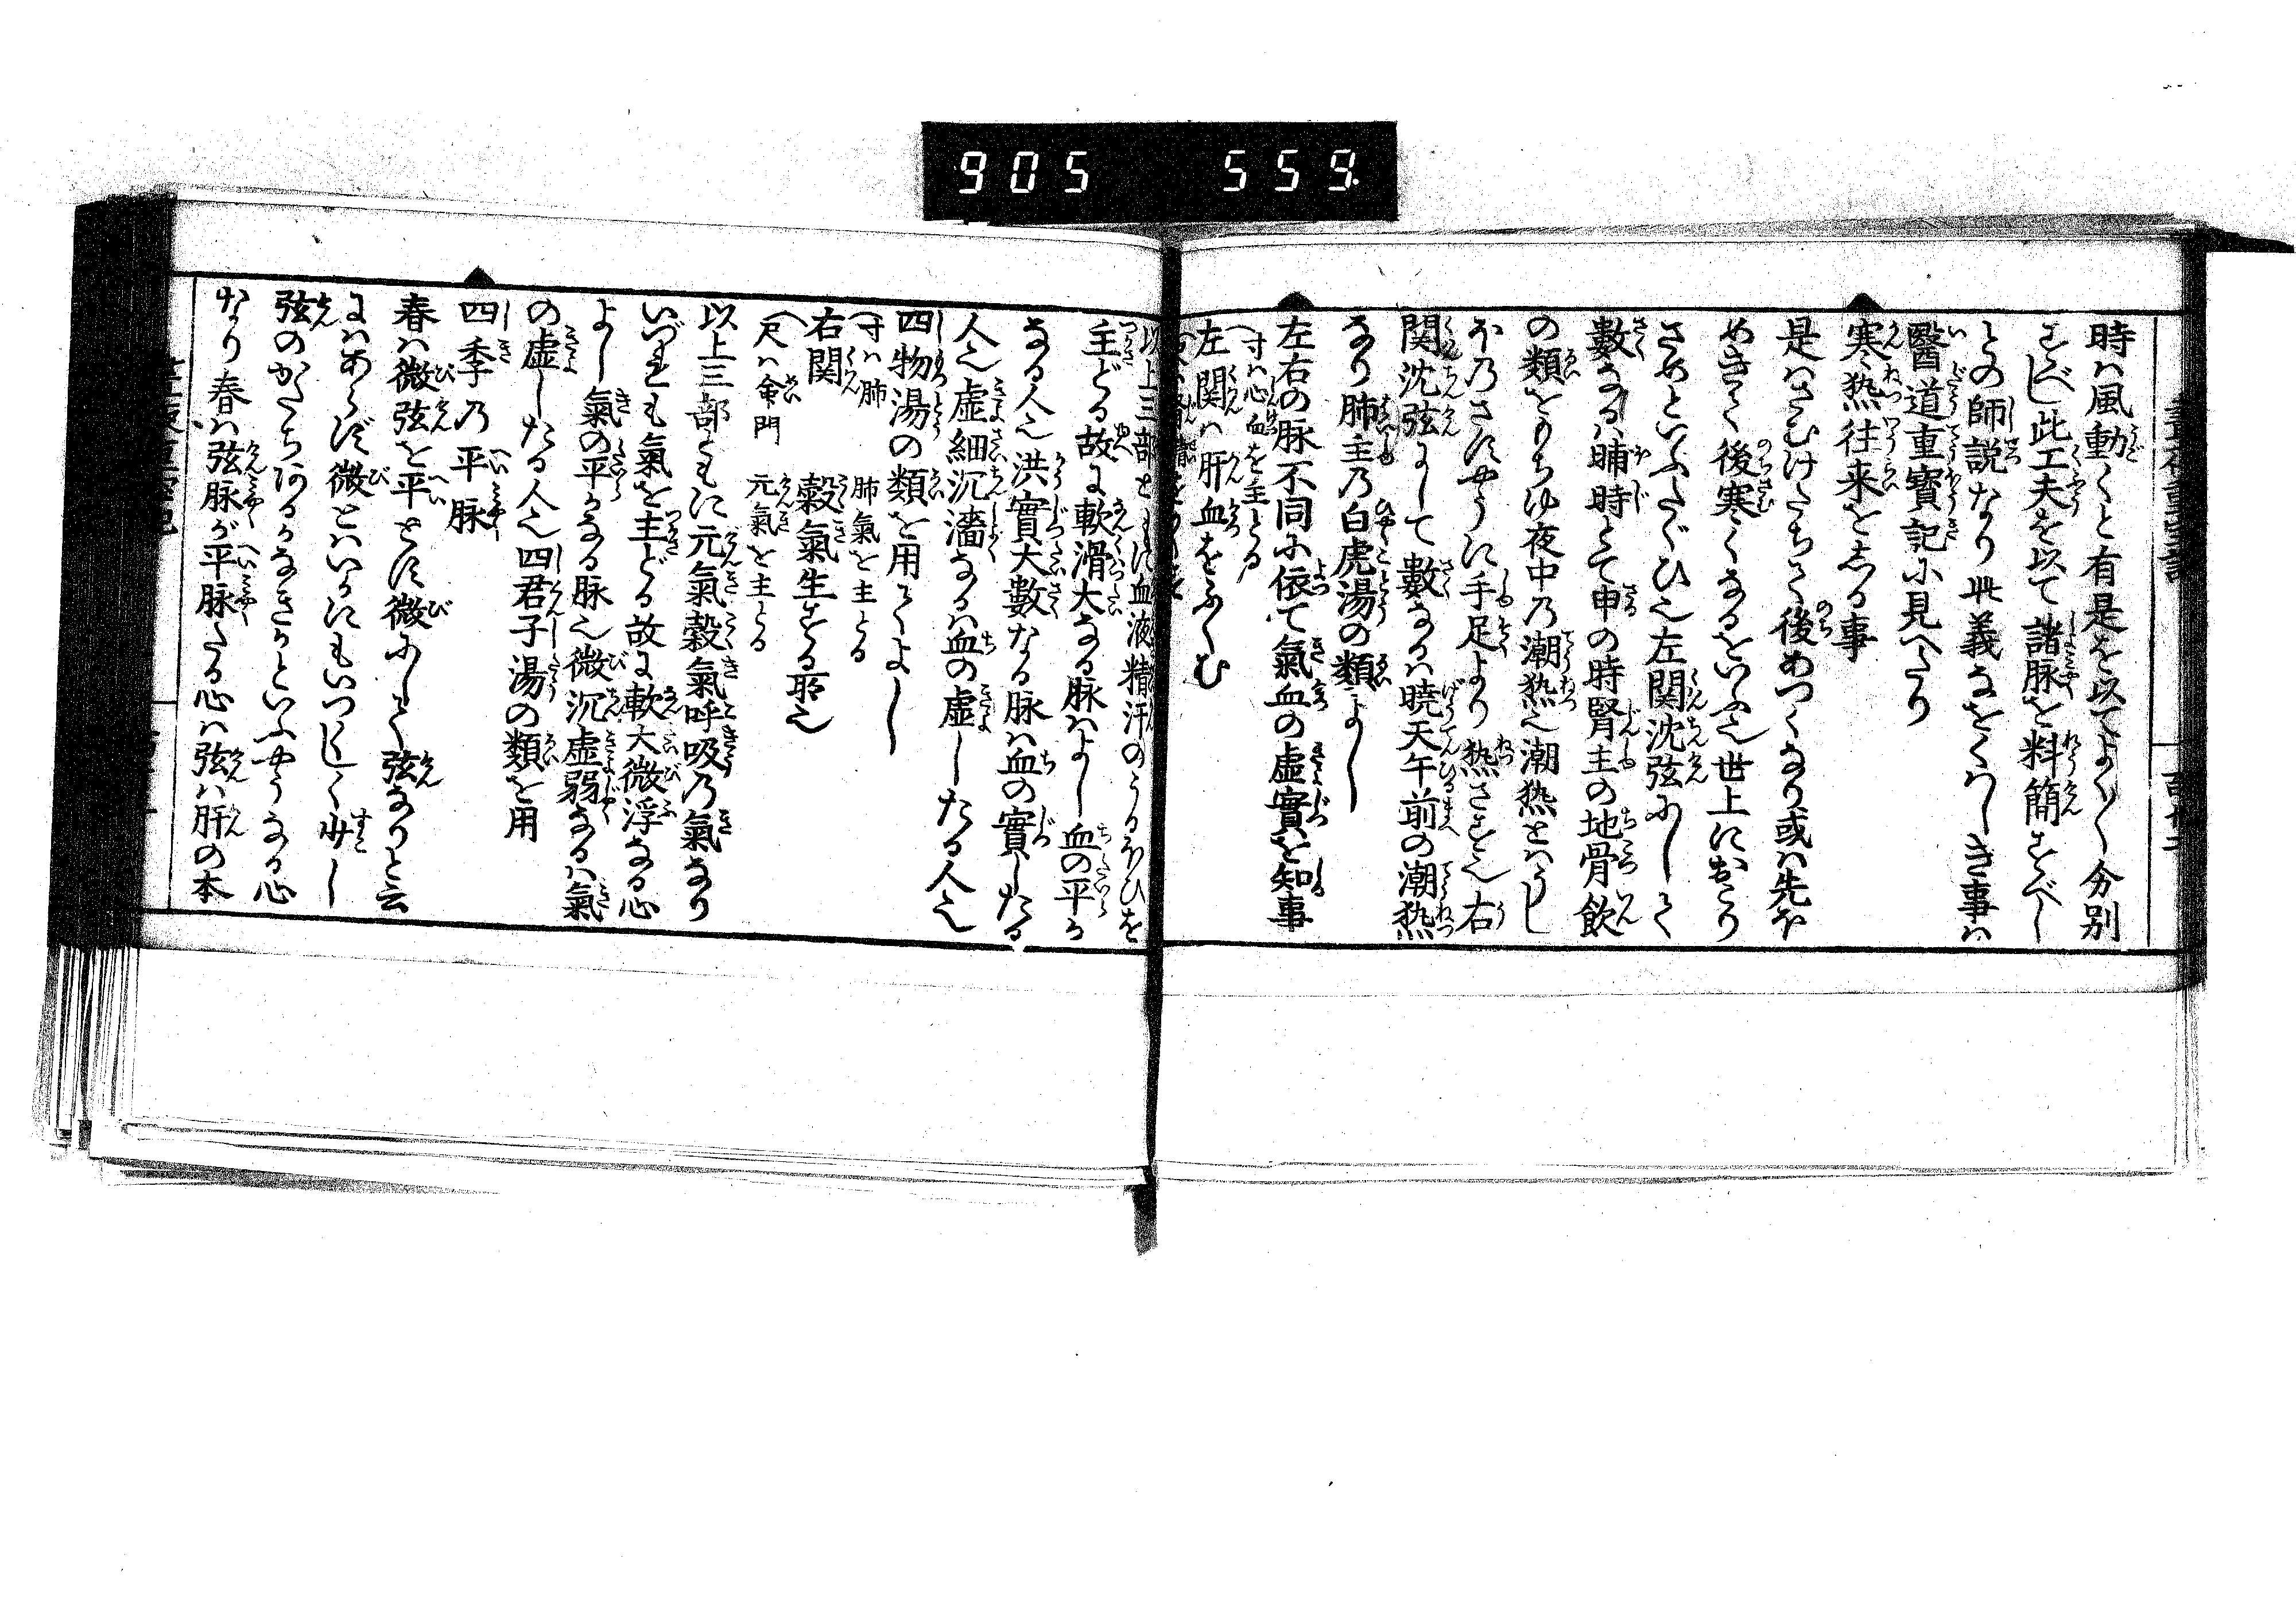 905 559
時ハ風動くと有是を以てよく〱分別
すべし此工夫を以て諸脉を料簡すべし
との師説なり此義なをくハしき事ハ
醫道重寳記に見へたり
寒熱往来をしる事
是ハさむけたちて後あつくなり或ハ先ほ
めきて後寒くなるをいふ也世上におこり
さめといふたぐひ也左関沈弦にして
數なるハ晡時とて申の時腎主の地骨飲
の類をもちゆ夜中の潮熱也潮熱とハうし
ほのさすやうに手足より熱さす也右
関沈弦にして數なるハ暁天午前の潮熱
なり肺主の白虎湯の類よし
左右の脉不同に依て氣血の虚實を知事
寸ハ心血を主どる
左関ハ肝血をふくむ
以上三部ともに血液精汗のうるほひを
主どる故に軟滑大なる脉ハよし血の平か
なる人也洪實大數なる脉ハ血の實したる
人也虚細沉濇なるハ血の虚したる人也
四物湯の類を用てよし
寸ハ肺 肺氣を主どる
右関 穀氣生ずる所也
尺ハ命門 元氣を主どる
以上三部ともに元氣穀氣呼吸乃氣なり
いづれも氣を主どる故に軟大微浮なる心
よし氣の平かなる脉也微沉虚弱なるハ氣
の虚したる人也四君子湯の類を用
四季乃平脉
春ハ微弦を平とす微にして弦なりと云
にハあらず微とハいかにもいつくしく少し
弦のかたちあるかなきかといふやうなる心
なり春ハ弦脉が平脉たる心ハ弦ハ肝の本